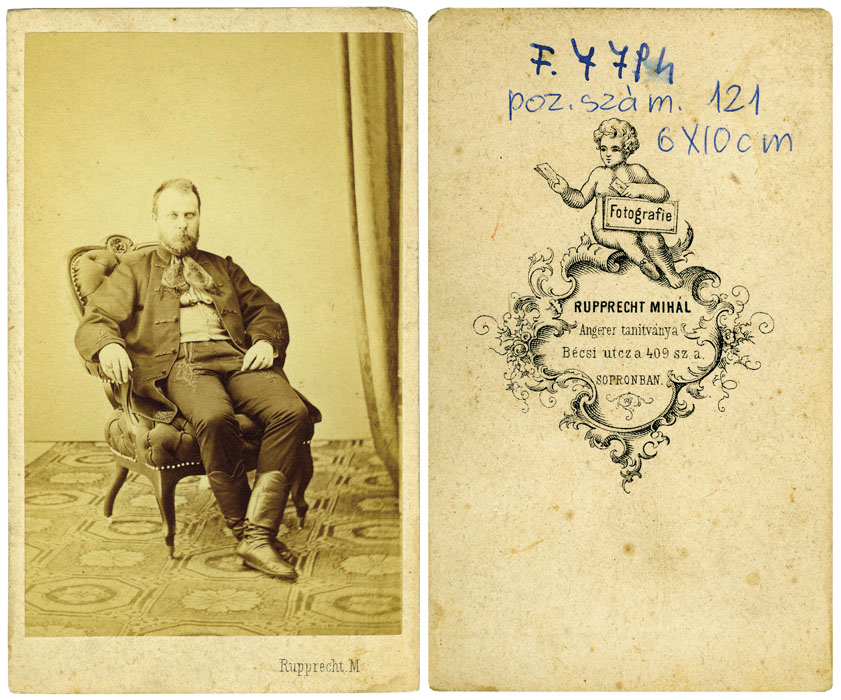 Rupprecht.M
F. 77Ph
poz.szám. 121
6X10cm
Fotografie
RUPPRECHT MIHÁL
Angerer tanitványa
Bécsi utcza 409 sz.a.
SOPRONBAN.